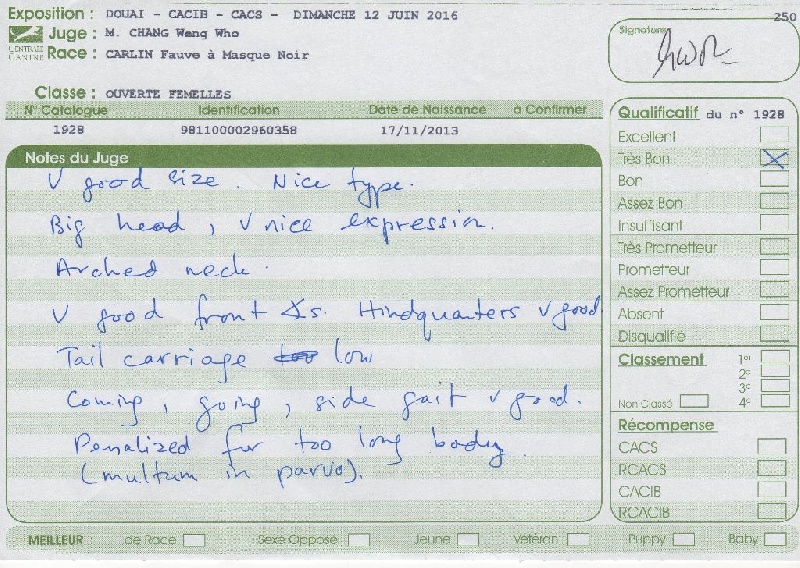 Exposition : DOUAI - CACIB - CACS - DIMANCHE 12 JUIN 2016
250
Juge : M. CHANG Weng Who
CENTRALE CANINE
Race : CARLIN Fauve à Masque Noir
Signature
Classe : OUVERTE FEMELLES
N° Catalogue Identification Date de Naissance à Confirmer
1928 981100002960358 17/11/2013
Notes du Juge
V good size. Nice type.
Big head, V nice expression.
Arched neck.
V good front ∡s. Hindquarters v good
Tail carriage too low
Coming, going, side gait v good.
Penalized for too long body.
(multum in parvo).
Qualificatif du n° 1928
Excellent
Très Bon
Bon
Assez Bon
Insuffisant
Très Prometteur
Prometteur
Assez Prometteur
Absent
Disqualifié
Classement 1er
2e
3e
Non Classé 4e
Récompense
CACS
RCACS
CACIB
RCACIB
MEILLEUR de Race Sexe Opposé Jeune Vétéran Puppy Baby